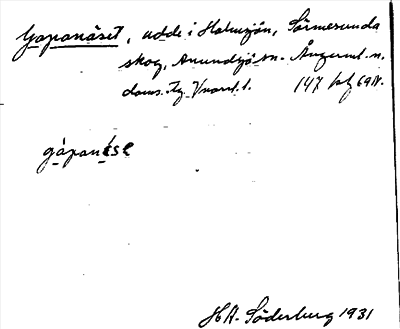 Gapanäset, udde i Holmsjön, Sörmesunda
skog, Anundsjö sn. Ångerml. n.
doms. Tg. Vnorrl. l. 147 kbl 69 N.
gàpanése
H A. Söderberg 1931